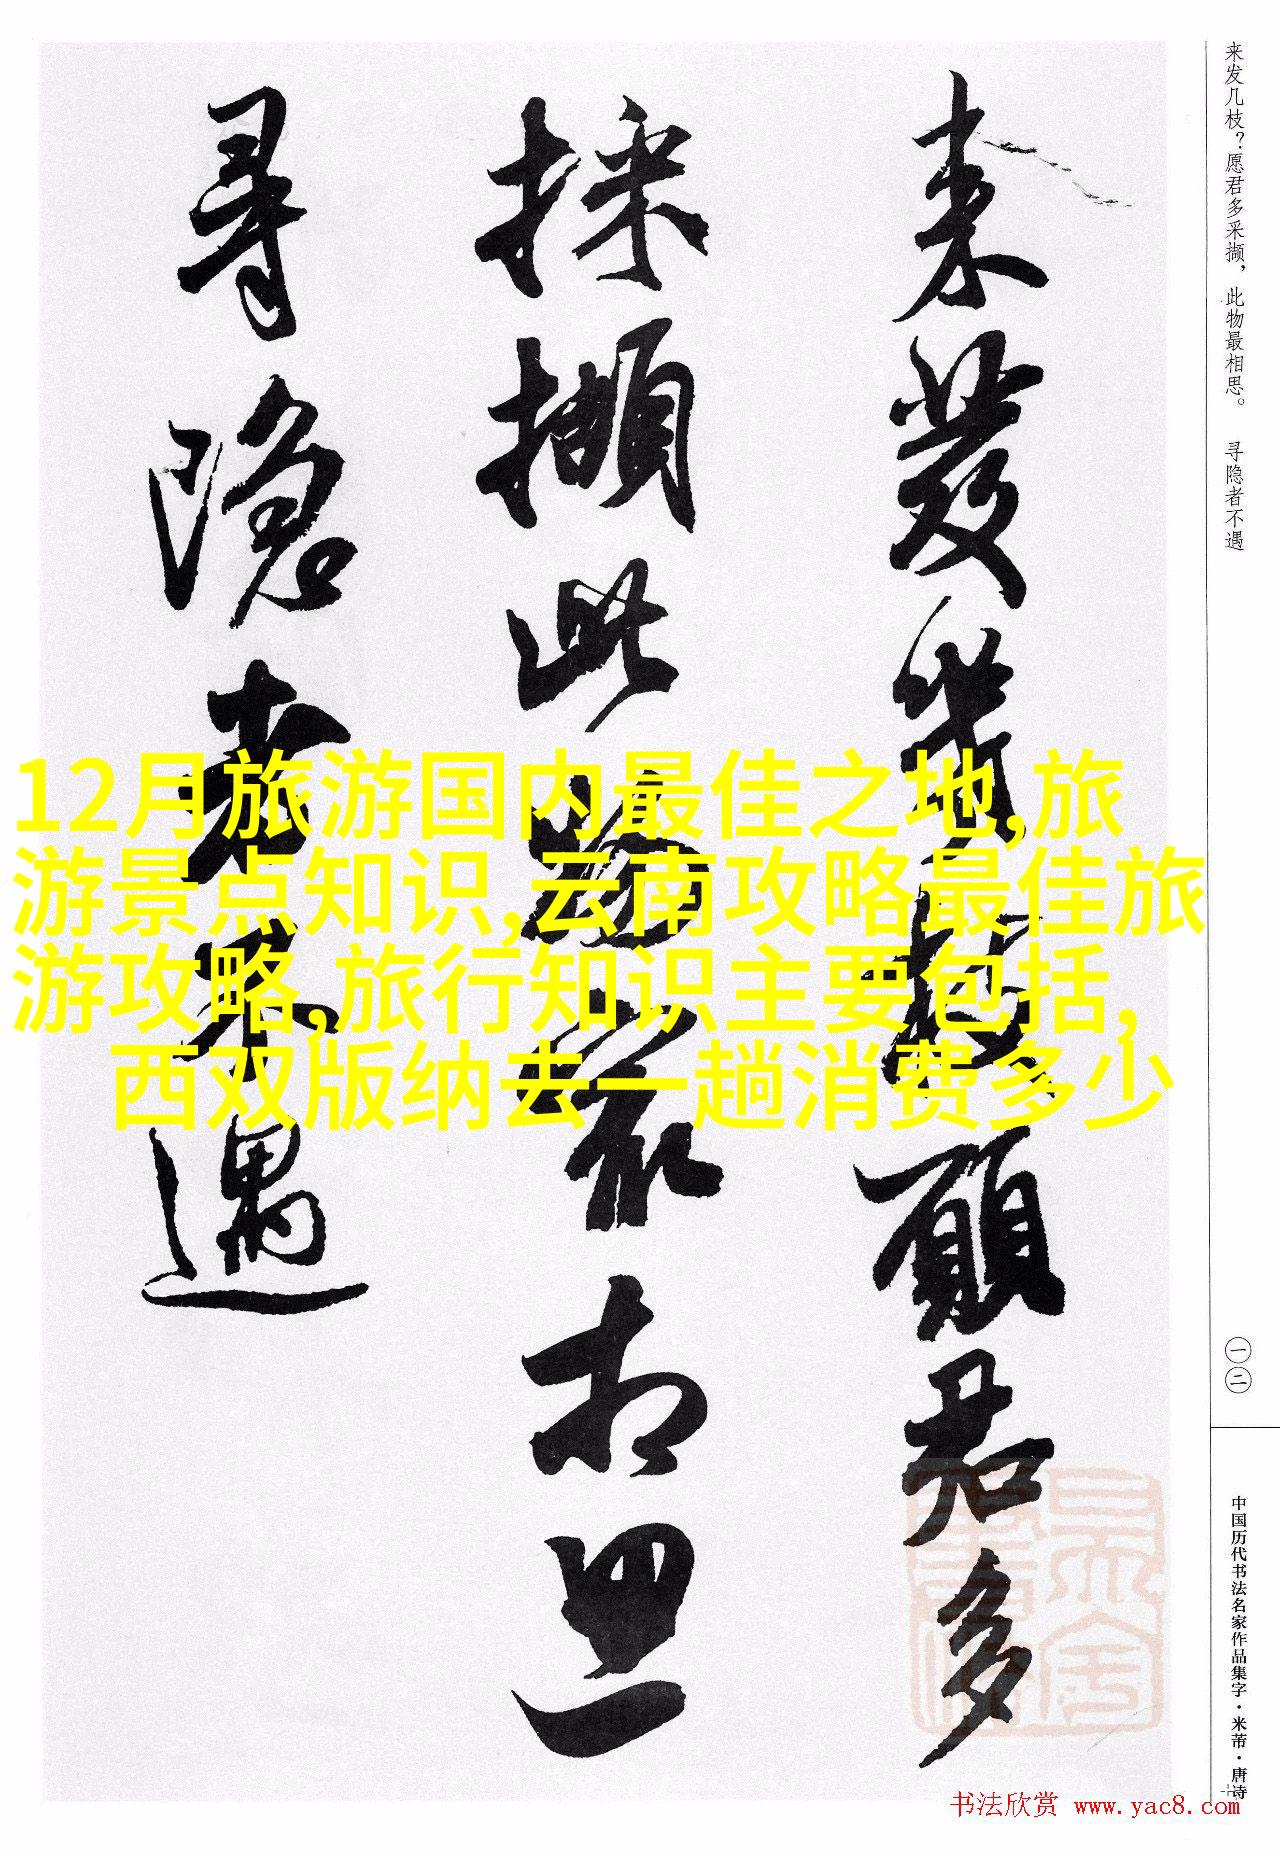 来发几枝？愿君多采撷，此物最相思。 寻隐者不遇
来發幾枝願君多
採擷此物最相思
寻隐者不遇
12月旅游国内最佳之地,旅
游景点知识,云南攻略最佳旅
游攻略,旅行知识主要包括,
西双版纳去一趟消费多少
一二
中国历代书法名家作品集字·米芾·唐诗
书法欣赏 www.yac8.com